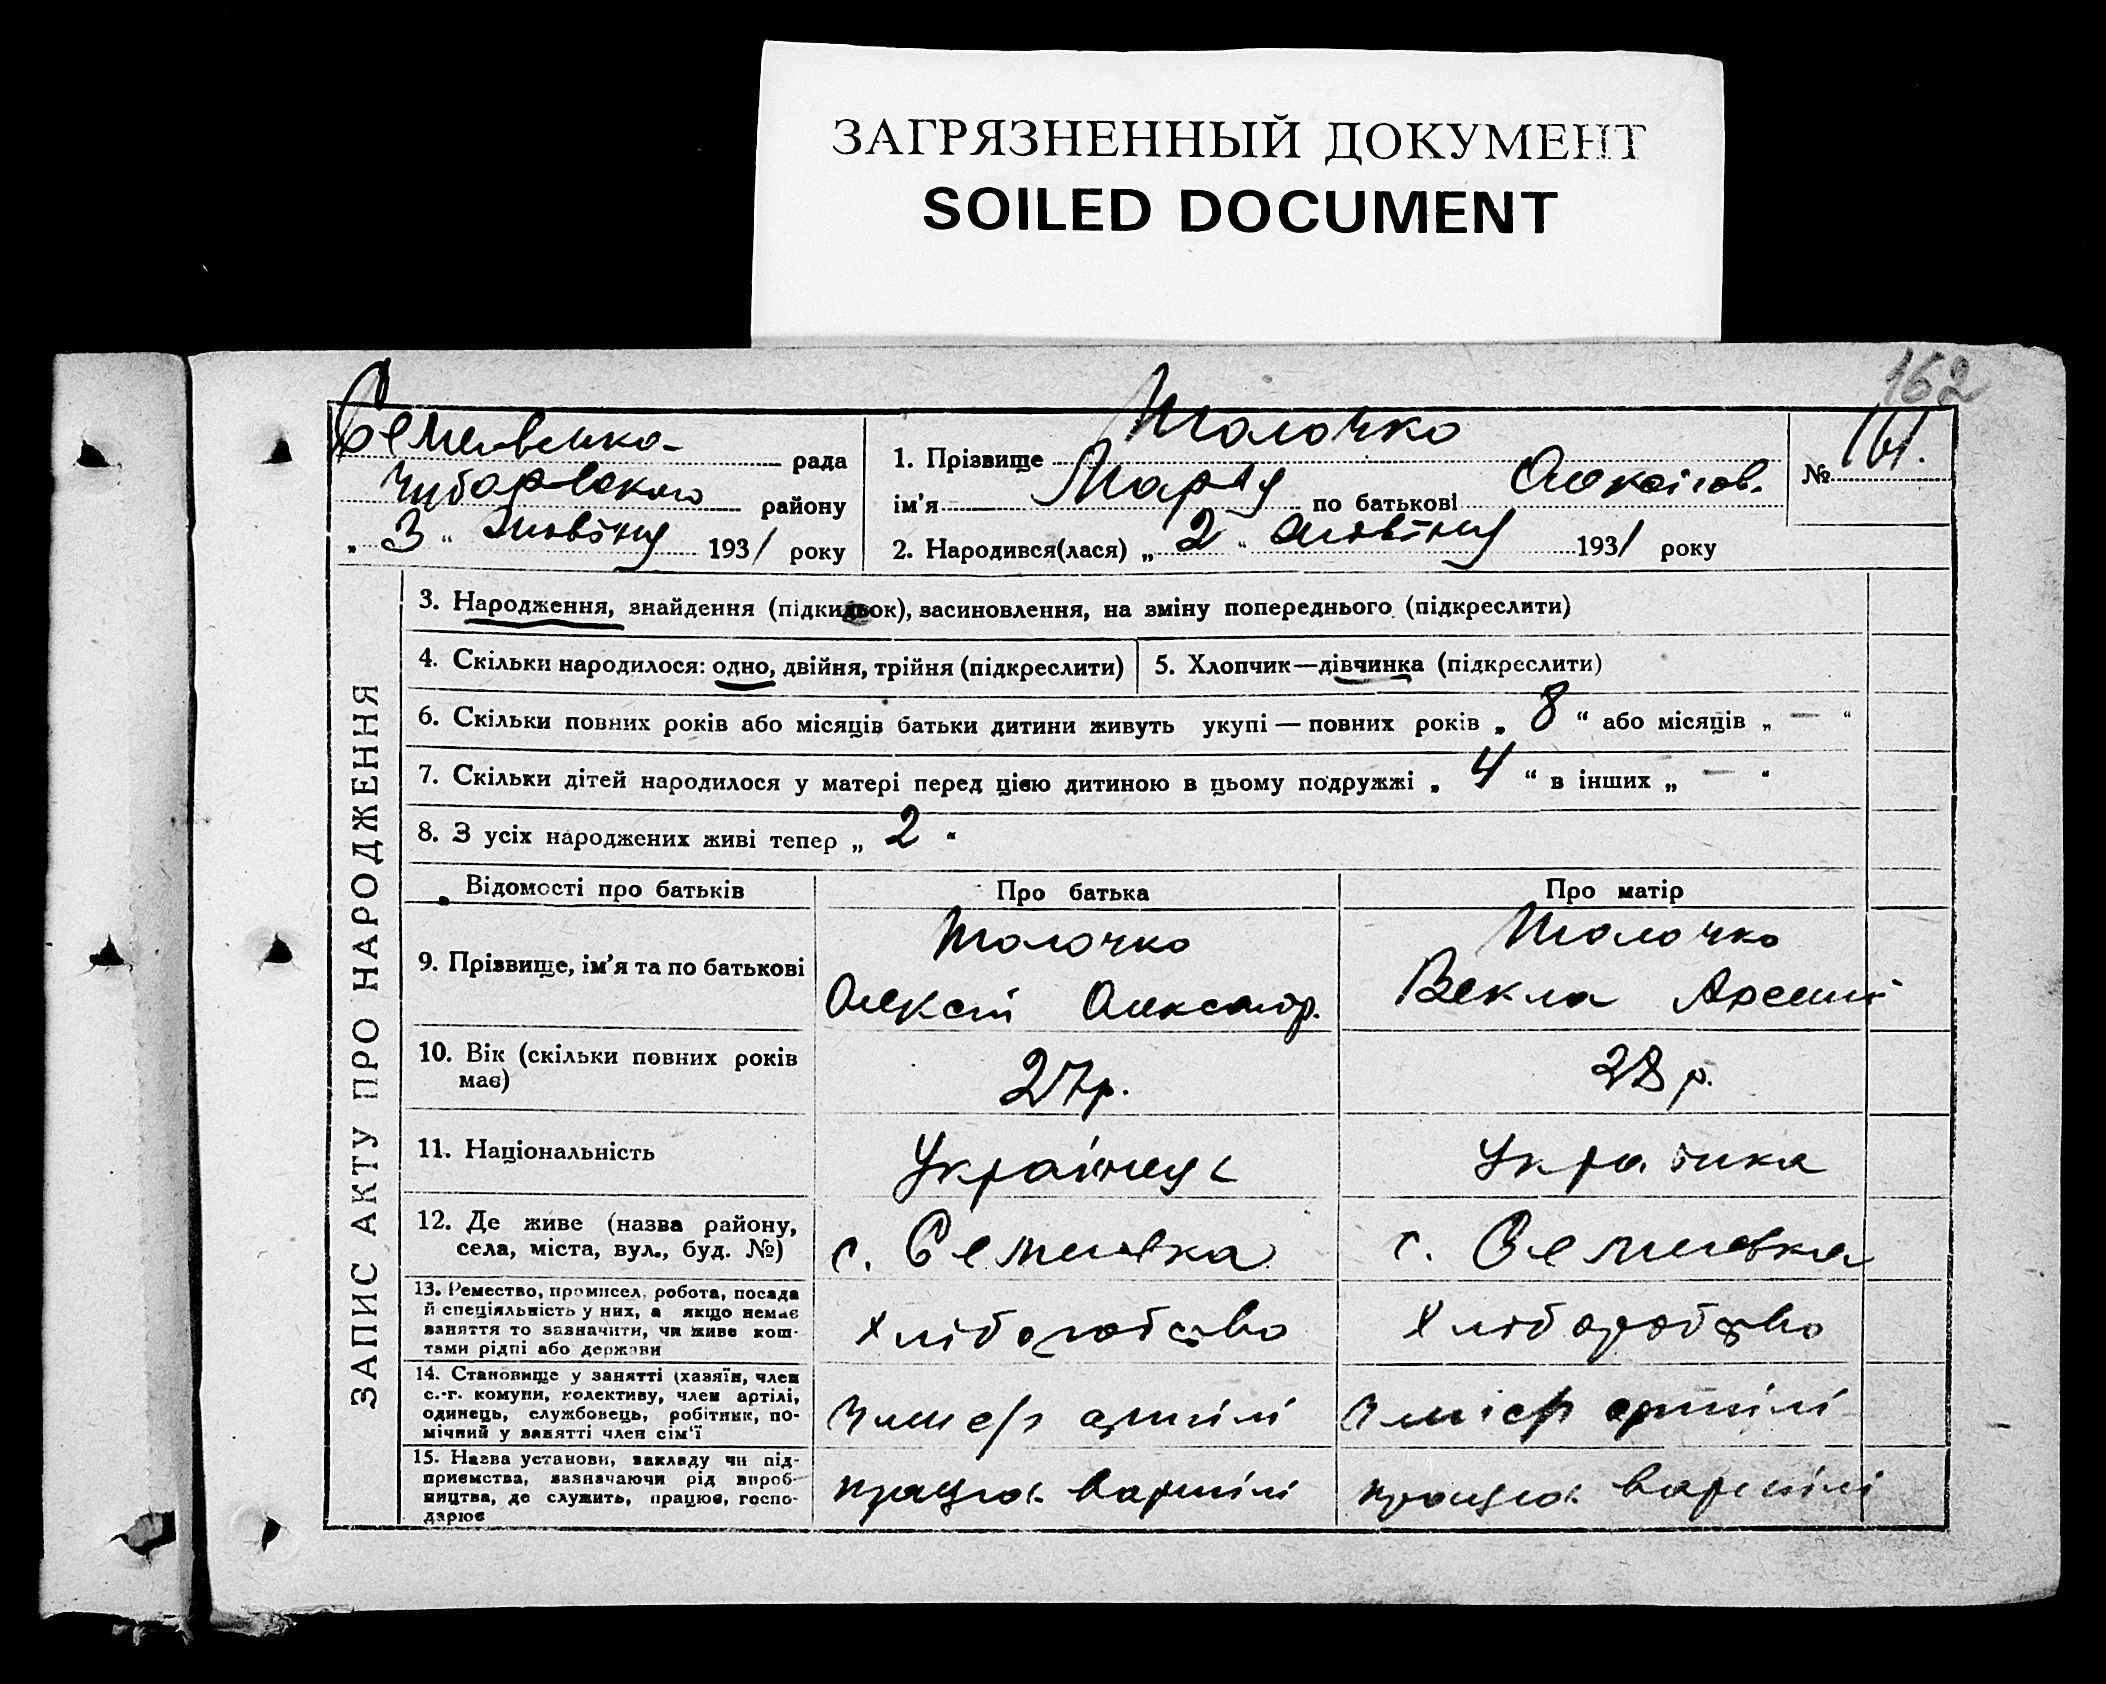 ЗАГРЯЗНЕННЫЙ ДОКУМЕНТ
SOILED DOCUMENT
162
рада
району
„ 3 “ 1931 року
1. Прізвище Толочко
ім’я по батькові
№ 161.
2. Народився(лася) „ 2 “ 1931 року
ЗАПИС АКТУ ПРО НАРОДЖЕННЯ
3. Народження, знайдення (підкидьок), засиновлення, на зміну попереднього (підкреслити)
4. Скільки народилося: одно, двійня, трійня (підкреслити)
5. Хлопчик—дівчинка (підкреслити)
6. Скільки повних років або місяців батьки дитини живуть укупі — повних років „ 8 “ або місяців „ — “
7. Скільки дітей народилося у матері перед цією дитиною в цьому подружжі „ 4 “ в інших „ — “
8. З усіх народжених живі тепер „ 2 “
Відомості про батьків
Про батька
Про матір
9. Прізвище, ім’я та по батькові
Толочко
Олексій Олександр.
Толочко
Векла Арсеній
10. Вік (скільки повних років
має)
27 р.
28 р.
11. Національність
Українець
Українка
12. Де живе (назва району,
села, міста, вул., буд. №)
с. Семенівка
с. Семенівка
13. Ремество, промисел, робота, посада
й спеціяльність у них, а якщо немає
заняття то зазначити, чи живе кош-
тами рідні або держави
Хліборобство
Хліборобство
14. Становище у занятті (хазяїн, член
с.-г. комуни, колективу, член артілі,
одинець, службовець, робітник, по-
мічний у занятті член сім’ї
Член с/г артілі
Член с/г артілі
15. Назва установи, закладу чи під-
приємства, зазначаючи рід вироб-
ництва, де служить, працює, госпо-
дарює
працює в артілі
працює в артілі